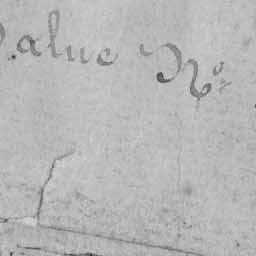 Value Nº